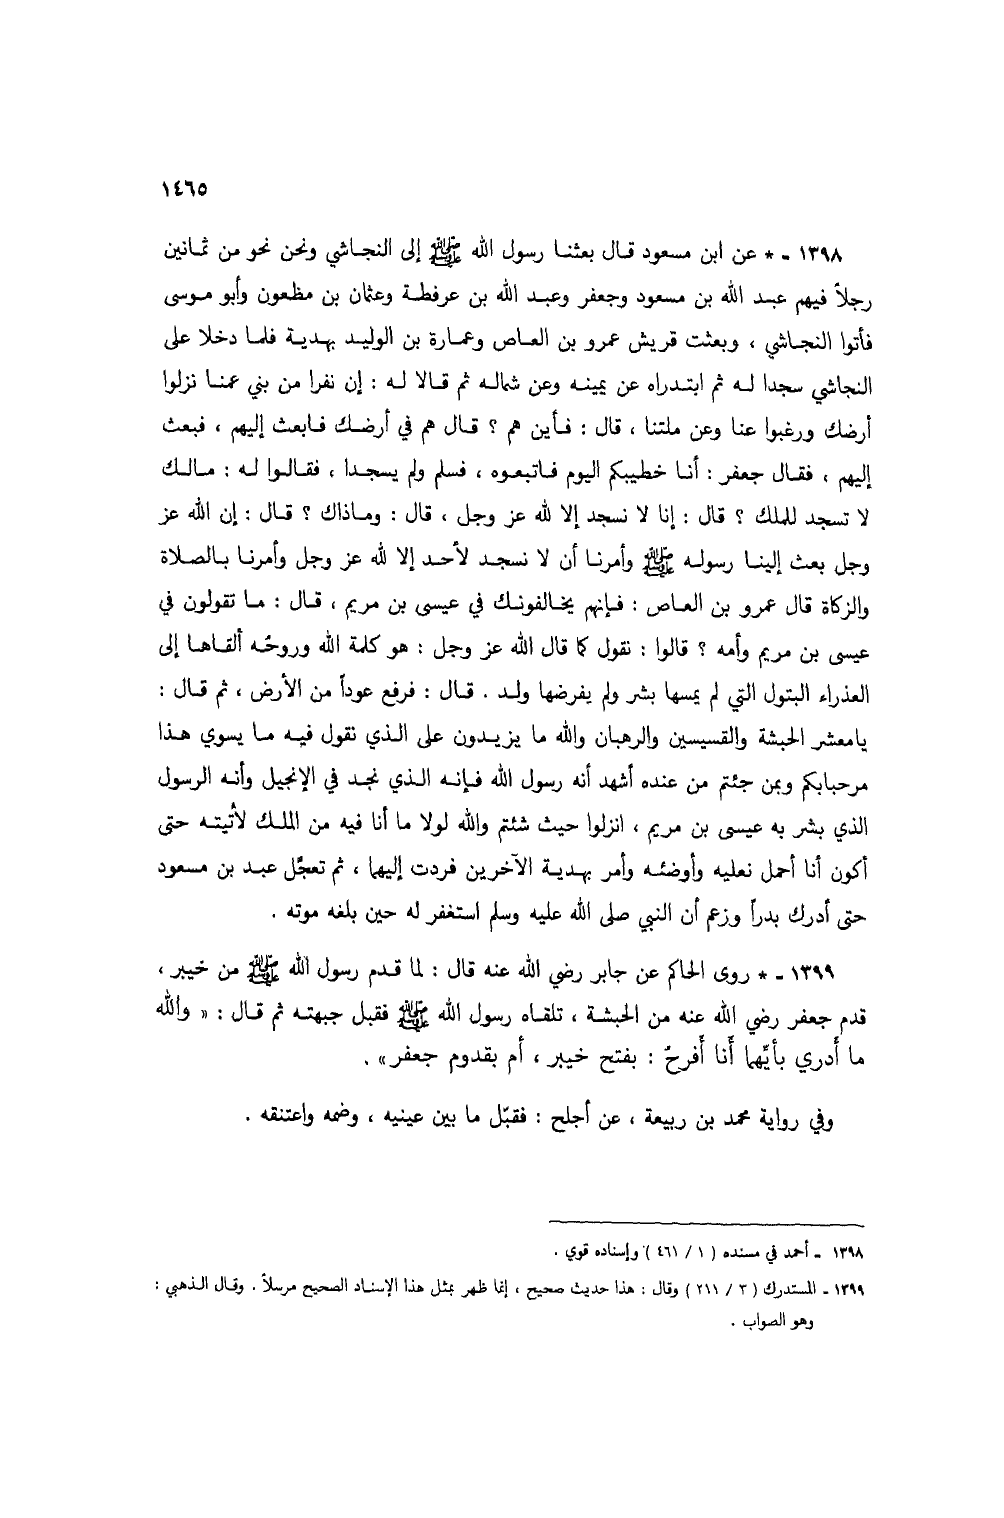 ١٤٦٥
١٣٩٨ - * عن ابن مسعود قال بعثنا رسول الله ﷺ إلى النجاشي ونحن نحو من ثمانين
رجلاً فيهم عبد الله بن مسعود وجعفر وعبد الله بن عرفطة وعثمان بن مظعون وأبو موسى
فأتوا النجاشي ، وبعثت قريش عمرو بن العاص وعمارة بن الوليد بهدية فلما دخلا على
النجاشي سجدا له ثم ابتدراه عن يمينه وعن شماله ثم قالا له : إن نفرا من بني عمنا نزلوا
أرضك ورغبوا عنا وعن ملتنا ، قال : فأين هم ؟ قال هم في أرضك فابعث إليهم ، فبعث
إليهم ، فقال جعفر : أنا خطيبكم اليوم فاتبعوه ، فسلم ولم يسجدا ، فقالوا له : مالك
لا تسجد للملك ؟ قال : إنا لا نسجد إلا لله عز وجل ، قال : وماذاك ؟ قال : إن الله عز
وجل بعث إلينا رسوله ﷺ وأمرنا أن لا نسجد لأحد إلا لله عز وجل وأمرنا بالصلاة
والزكاة قال عمرو بن العاص : فإنهم يخالفونك في عيسى بن مريم ، قال : ما تقولون في
عيسى بن مريم وأمه ؟ قالوا : نقول كما قال الله عز وجل : هو كلمة الله وروحُه ألقاها إلى
العذراء البتول التي لم يمسها بشر ولم يفرضها ولد . قال : فرفع عوداً من الأرض ، ثم قال :
يامعشر الحبشة والقسيسين والرهبان والله ما يزيدون على الذي نقول فيه ما يسوي هذا
مرحبابكم وبمن جئتم من عنده أشهد أنه رسول الله فإنه الذي نجد في الإنجيل وأنه الرسول
الذي بشر به عيسى بن مريم ، انزلوا حيث شئتم والله لولا ما أنا فيه من الملك لأتيته حتى
أكون أنا أحمل نعليه وأوضئه وأمر بهدية الآخرين فردت إليهما ، ثم تعجَّل عبد بن مسعود
حتى أدرك بدراً وزعم أن النبي صلى الله عليه وسلم استغفر له حين بلغه موته .
١٣٩٩ - * روى الحاكم عن جابر رضي الله عنه قال : لما قدم رسول الله ﷺ من خيبر ،
قدم جعفر رضي الله عنه من الحبشة ، تلقاه رسول الله ﷺ فقبل جبهته ثم قال : « والله
ما أَدري بأيِّهما أَنا أَفرحُ : بفتح خيبر ، أم بقدوم جعفر» .
وفي رواية محمد بن ربيعة ، عن أجلح : فقبّل ما بين عينيه ، وضمه واعتنقه .
١٣٩٨ - أحمد في مسنده ( ١ / ٤٦١ ) وإسناده قوي .
١٣٩٩ - المستدرك ( ٣ / ٢١١ ) وقال : هذا حديث صحيح ، إنما ظهر بمثل هذا الإسناد الصحيح مرسلاً . وقال الذهبي :
وهو الصواب .